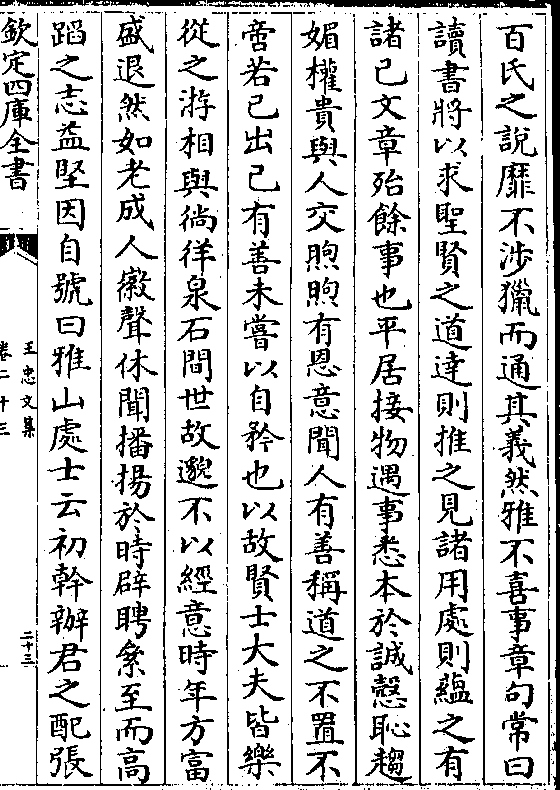 百氏之說靡不涉獵而通其義然雅不喜事章句常曰
讀書將以求聖賢之道達則推之見諸用處則蘊之有
諸已文章殆餘事也平居接物遇事悉本於誠慤恥趨
媚權貴與人交煦煦有恩意聞人有善稱道之不置不
啻若已出已有善未嘗以自矜也以故賢士大夫皆樂
從之游相與徜徉泉石間世故邈不以經意時年方富
盛退然如老成人徽聲休聞播揚於時辟聘絫至而高
蹈之志益堅因自號曰雅山處士云初幹辦君之配張
欽定四庫全書
王忠文集
卷二十三
二十三